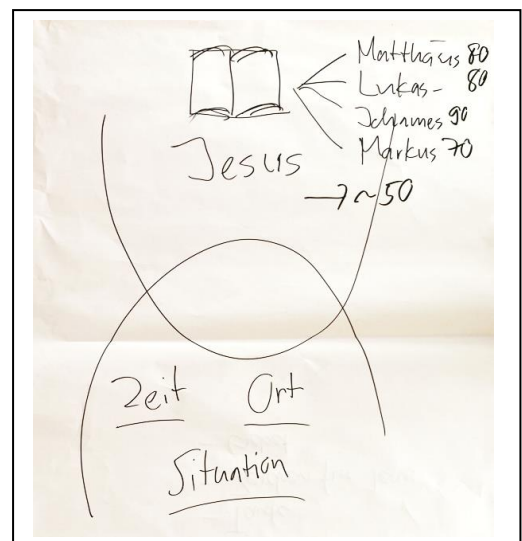 Matthäus 80
Lukas- 80
Johannes 90
Markus 70
Jesus
→ ~50
Zeit Ort
Situation